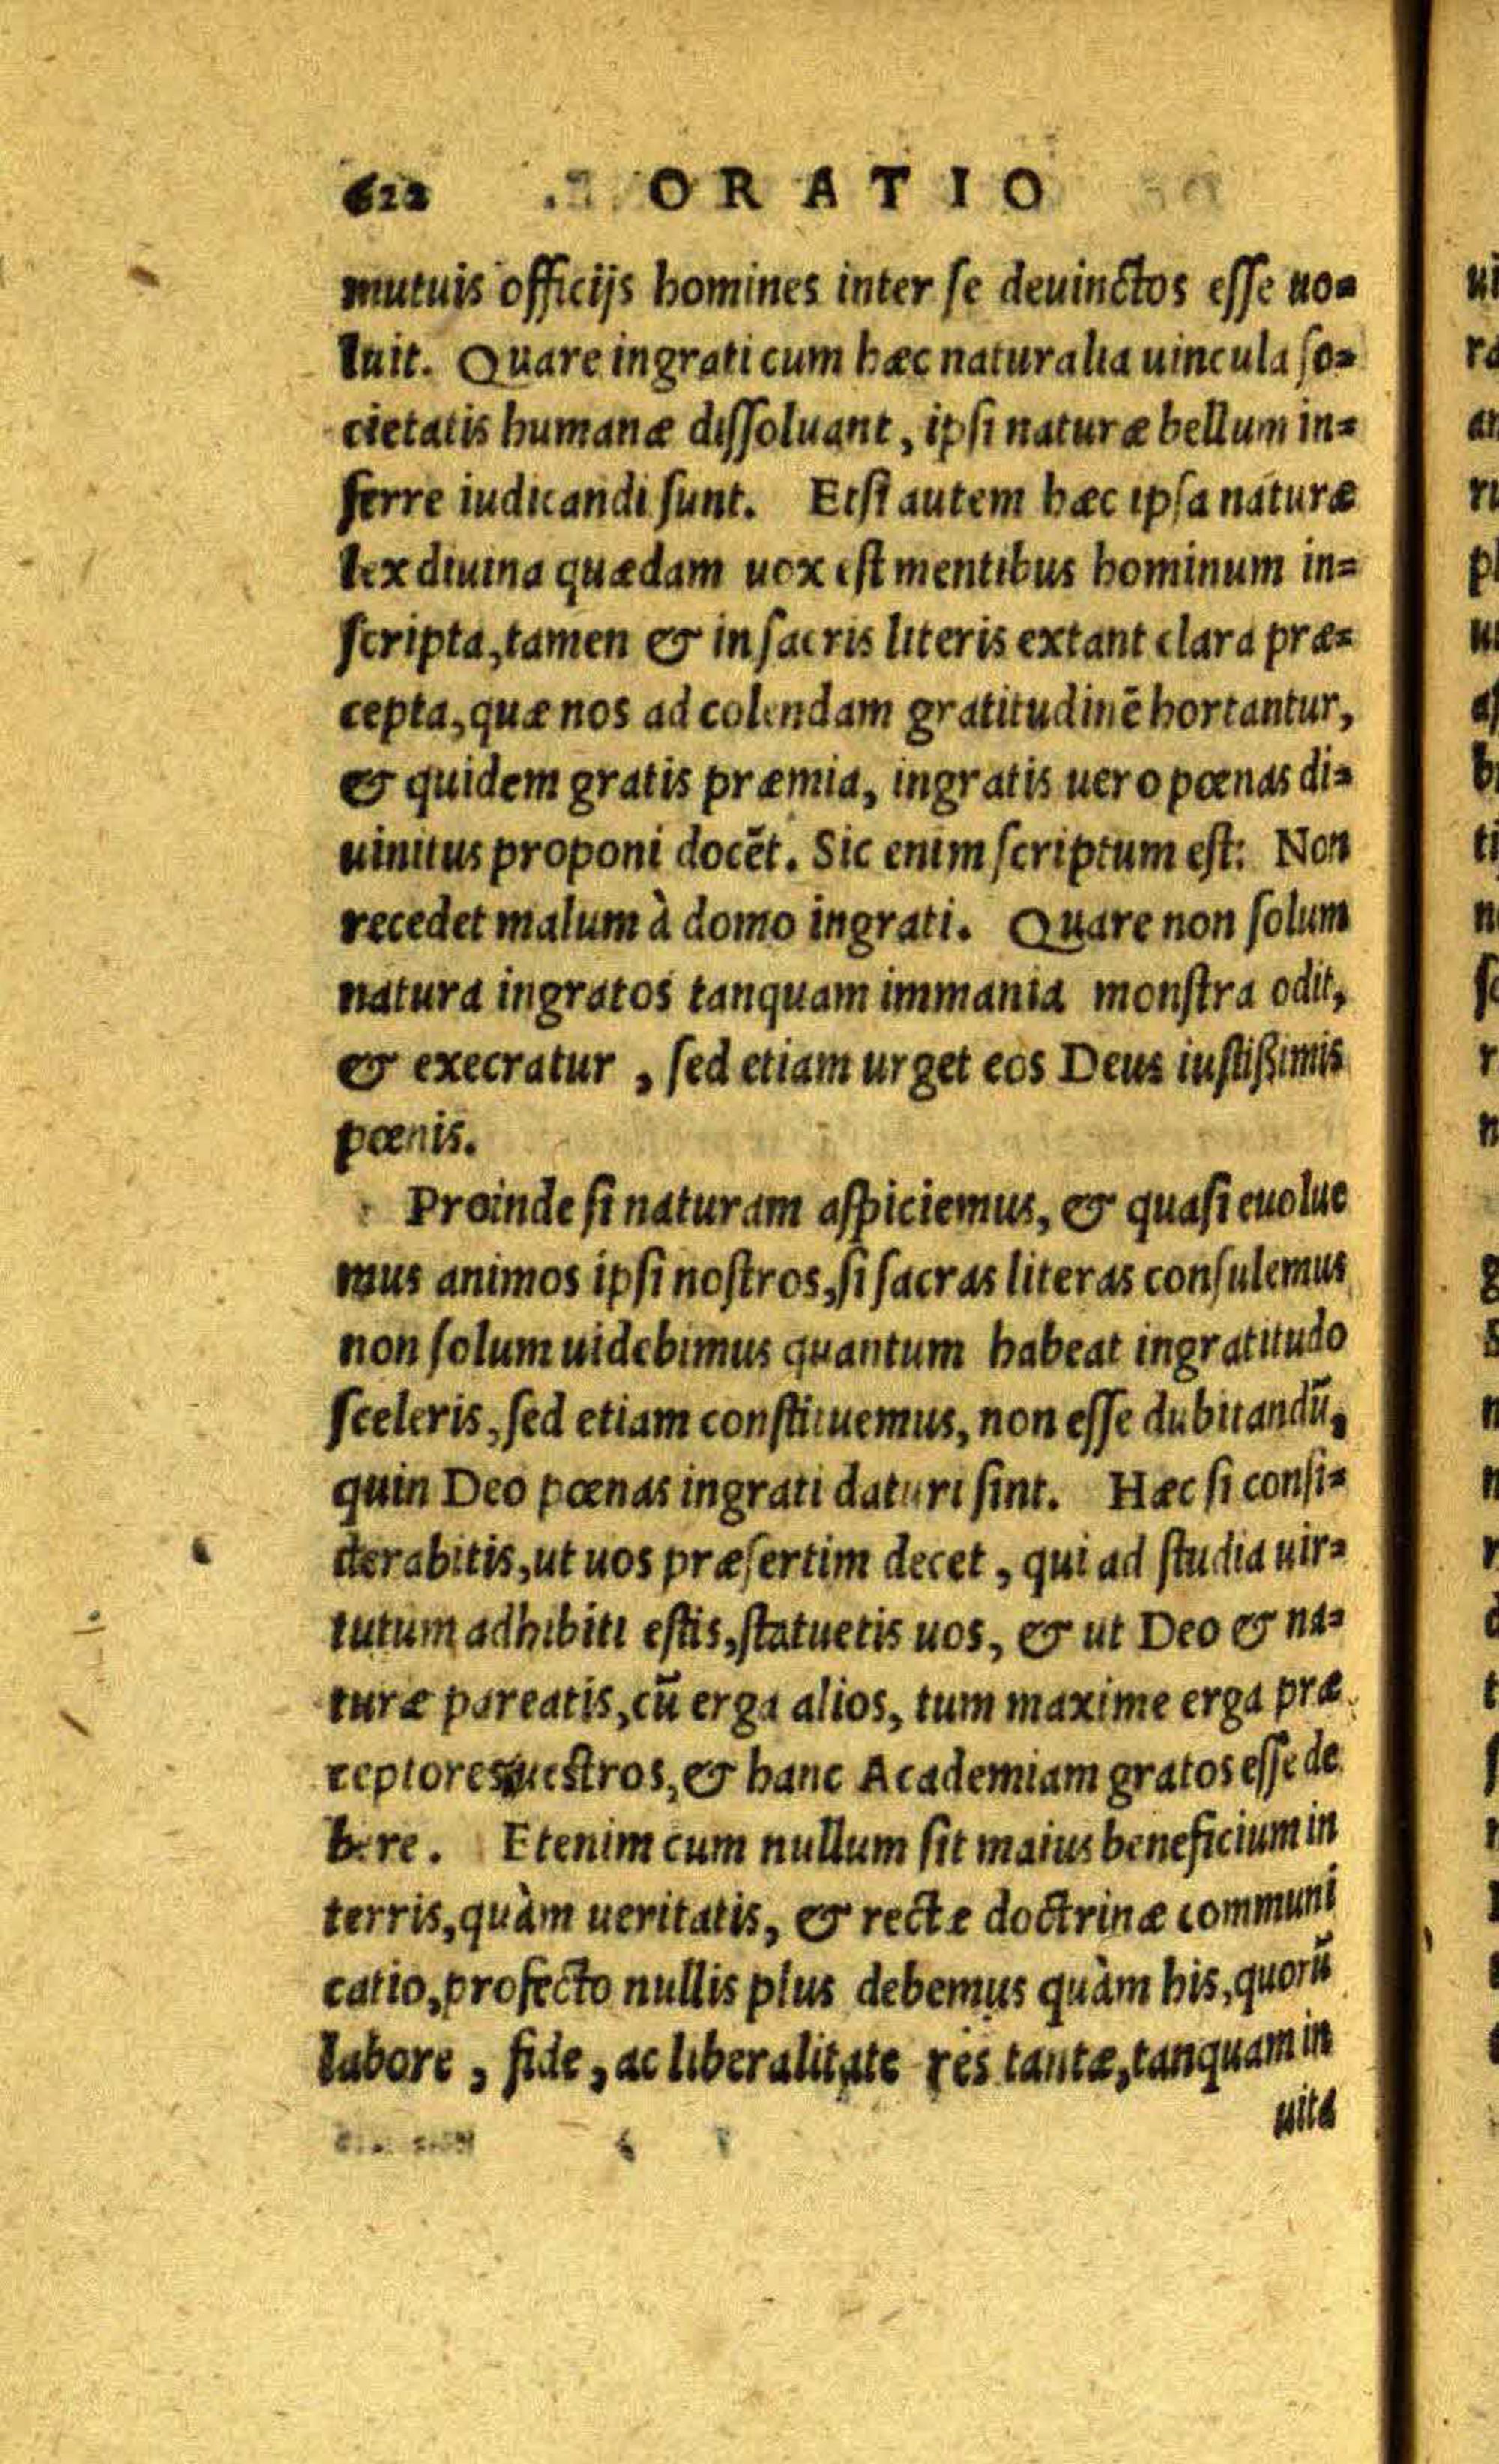 622 ORATIO
mutuis officijs homines inter se deuinctos esse uo=
luit. Quare ingrati cum hæc naturalia uincula so=
cietatis humanæ dissoluant, ipsi naturæ bellum in=
ferre iudicandi sunt. Etsi autem hæc ipsa naturæ
lex diuina quædam uox est mentibus hominum in=
scripta, tamen & in sacris literis extant clara præ=
cepta, quæ nos ad colendam gratitudinē hortantur,
& quidem gratis præmia, ingratis uero pœnas di=
uinitus proponi docēt. Sic enim scriptum est: Non
recedet malum à domo ingrati. Quare non solum
natura ingratos tanquam immania monstra odit,
& execratur, sed etiam urget eos Deus iustißimis
pœnis.
Proinde si naturam aspiciemus, & quasi euolue
mus animos ipsi nostros, si sacras literas consulemus
non solum uidebimus quantum habeat ingratitudo
sceleris, sed etiam constituemus, non esse dubitandū,
quin Deo pœnas ingrati daturi sint. Hæc si consi=
derabitis, ut uos præsertim decet, qui ad studia uir=
tutum adhibiti estis, statuetis uos, & ut Deo & na=
turæ pareatis, cū erga alios, tum maxime erga præ
ceptores uestros, & hanc Academiam gratos esse de
bere. Etenim cum nullum sit maius beneficium in
terris, quàm ueritatis, & rectæ doctrinæ communi
catio, profecto nullis plus debemus quàm his, quorū
labore, fide, ac liberalitate res tantæ, tanquam in
uita